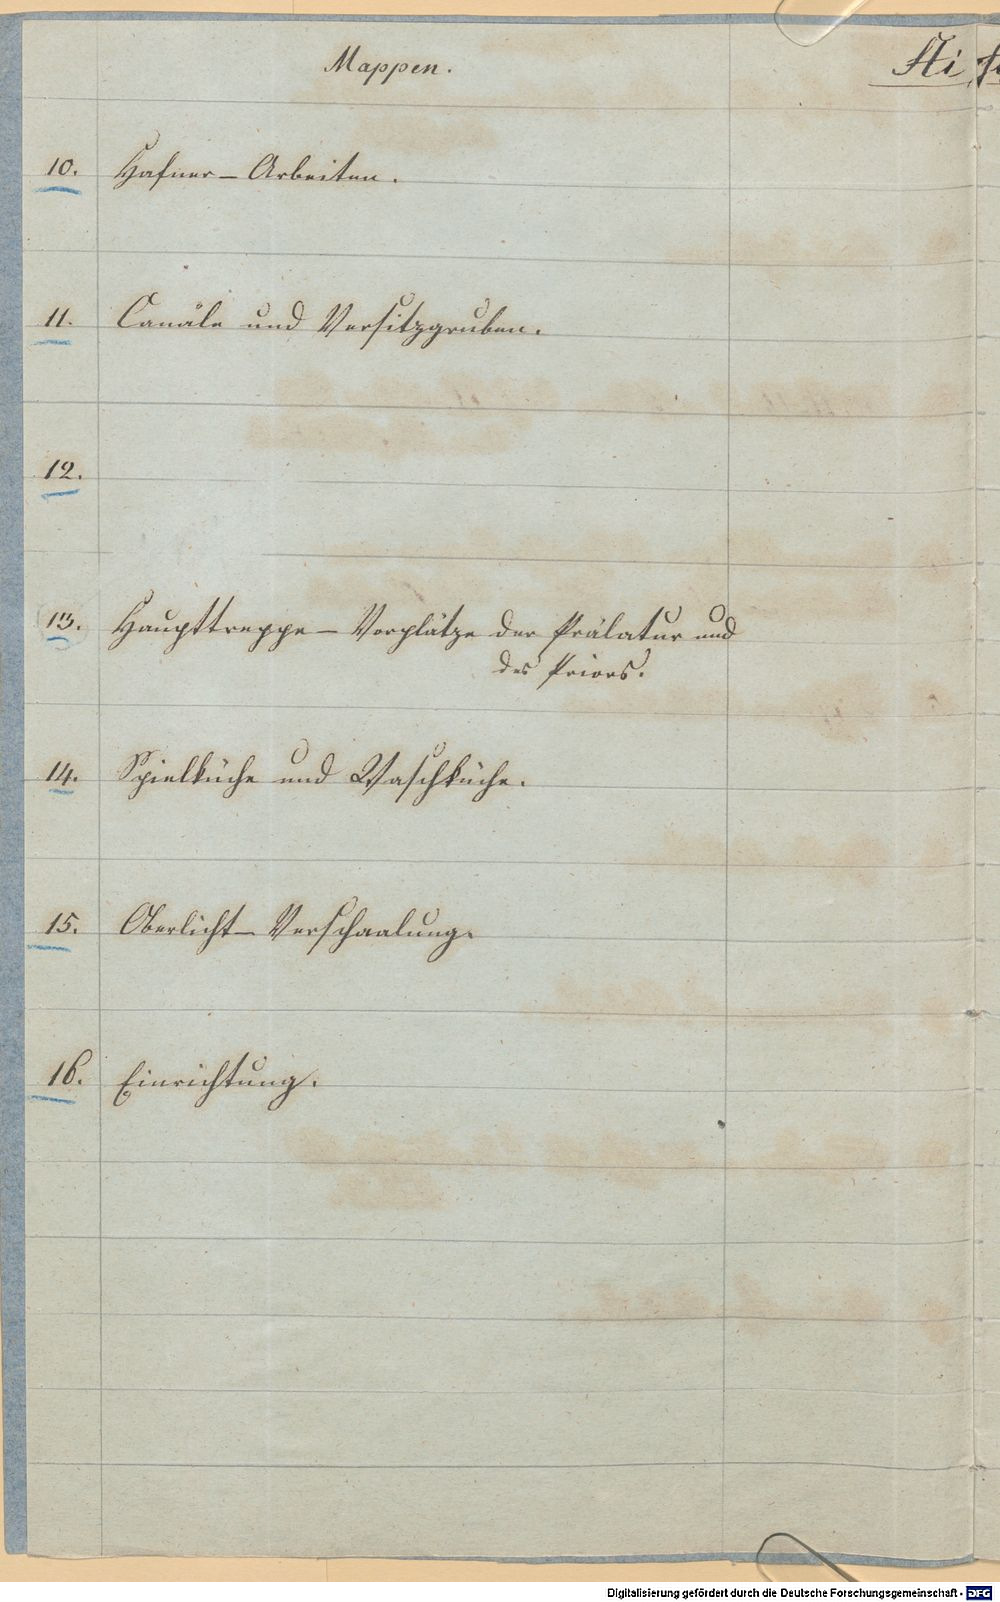 Mappen.
10. Hafner-Arbeiten.
11. Canäle und Versitzgruben.
12.
13. Haupttreppe - Vorplätze der Prälatur und
des Priors.
14. Spielküche und Waschküche.
15. Oberlicht-Verschaalung.
16. Einrichtung.
Digitalisierung gefördert durch die Deutsche Forschungsgemeinschaft - DFG